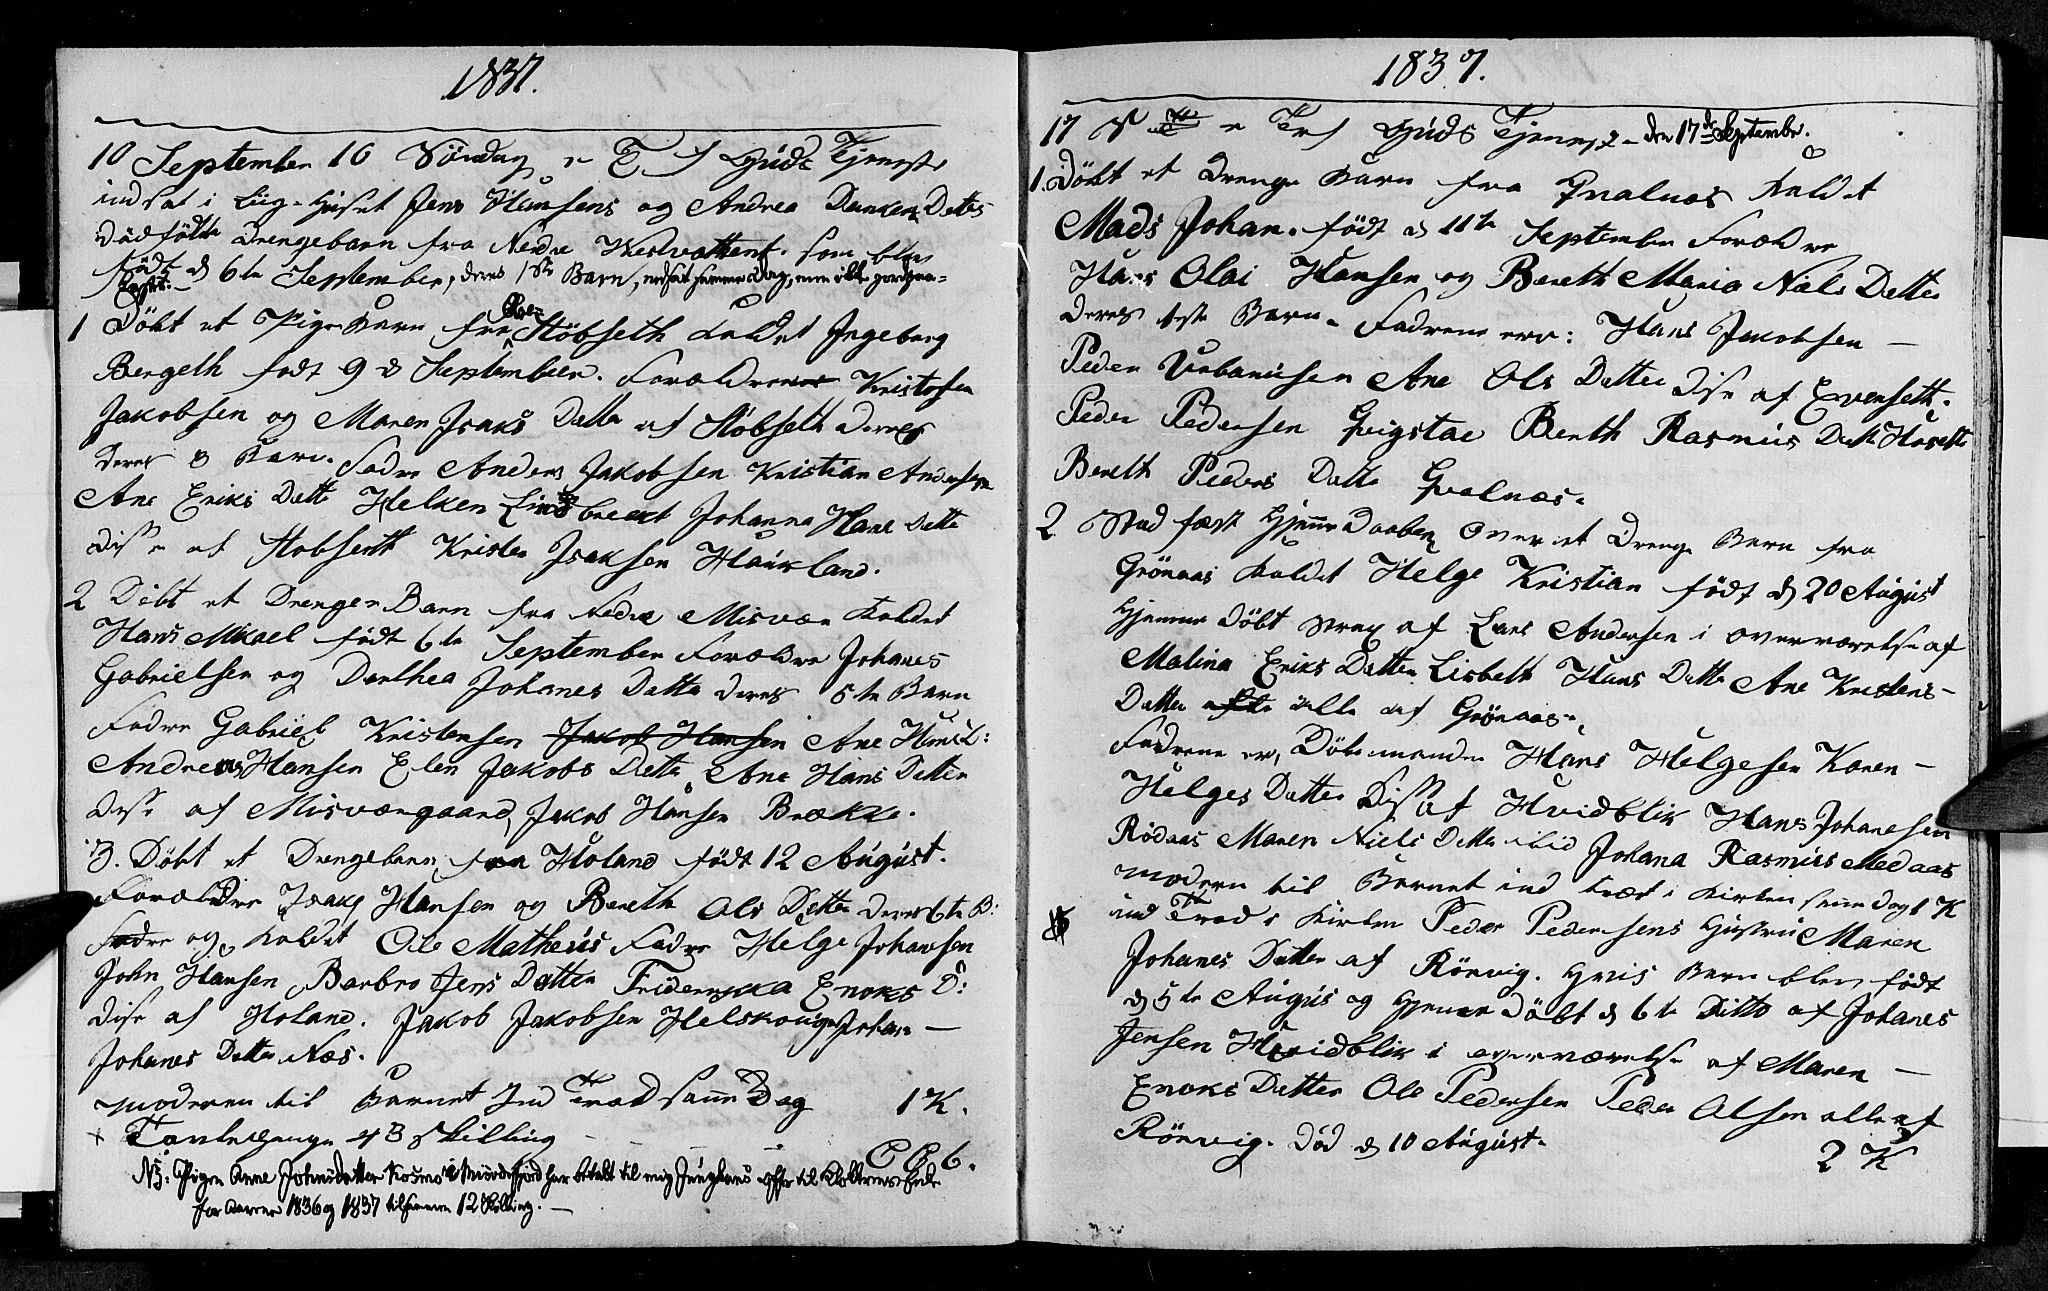 1837.
10 September 16 Søndag e T f Guds Tjeneste
indsat i Liig-Huset Jens Hansens og Andrea Datter
dødfødte Drengebarn fra Nedre Westvattent. som blev
født d 6te September, deres 1ste Barn, nedsat samme Dag, men ikke jordpaa-
kastet.
1 Døbt et PigeBarn fra Øvre Støbseth kaldet Ingeberg
Bergeth født 9 d September. Forældrene Kristofer
Jakobsen og Maren Isaks Datter af Støbseth deres
deres 8 Barn. Fadre Anders Jakobsen Kristian Andersen
Ane Eriks Datter Helken Johanna Hans Datter
disse af Støbseth Kristen Isaksen Haukland.
2 Døbt et Drenge Barn fra Nedre Misvær kaldet
Hans Mikael født 6te September Forældre Johanes
Gabrielsen og Dorthea Johanes Datter deres 5te Barn
Fadre Gabriel Kristensen Jakob Hansen Ane Hans D:
Andreas Hansen Elen Jakobs Datter Ane Hans Datter
disse af Misværgaard, Jakob Hansen Brække.
3. Døbt et Drengebarn fra Holand født 12 August.
Forældre Isak Hansen og Bereth Ols Datter deres 6te B:
Fadre og kaldet Ole Matheus Fadre Helge Johansen
John Hansen Barbro Jens Datter Friderikka Enoks D:
disse af Holand. Jakob Jakobsen Johan—
Johanes Datter Næs.
moderen til Barnet Ind Traad samme Dag 1 K.
Tavlepenge 48 skilling
C B 6.
NB: Pigen Anne Johnsdatter Kosmo i Misværfjord har betalt til mig Offer til Klokkeren
for Aarene 1836 og 1837 tilsammen 12 Skilling. —
1837.
17 S e Tr f Guds Tjeneste - den 17de September.
1. Døbt et Drenge Barn fra Hvalnæs kaldet
Mads Johan. født d 11te September Forældre
Hans Olai Hansen og Bereth Maria Niels Datter
deres 1ste Barn. Fadrene ere: Hans Jakobsen —
Peder Urbanusen Ane Ols Datter disse af Evenseth.
Peder Pedersen Kvigstad Bereth Rasmus Datter
Bereth Peders Datter Hvalnæs.
2 Stadfæst Hjemme Daaben over et Drenge Barn fra
Grønaas kaldet Helge Kristian født d 20 August
Hjemme Døbt strax af Lars Andersen i overværelse af
Malina Eriks Datter Lisbeth Hans Datter Ane Kristens-
Datter alle af Grønaas.
Fadrene er, Døbemanden Hans Helgesen Karen —
Helges Datter Disse af Hvidblik Hans Johanesen
Rødaas Maren Niels Datter ibid Johana Rasmus Medaas
moderen til Barnet ind traadt i Kirken samme Dag 1 K
ind Traad i Kirken Peder Pedersens Hustru Maren
Johanes Datter af Rønvig. Hvis Barn blev født
d 5te Augus og Hjemme døbt d 6te Ditto af Johanes
Jensen Hvidblik i overværelse af Maren —
Enoks Datter Ole Pedersen Peder Olsen alle af
Rønvig. død d 10 August.
2 K